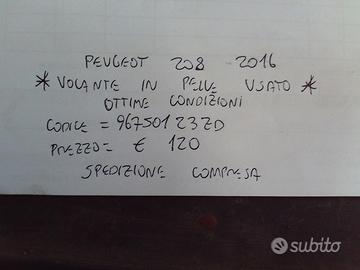 PEUGEOT 208 - 2016
* VOLANTE IN PELLE USATO *
OTTIME CONDIZIONI
CODICE = 96750123ZD
PREZZO = € 120
SPEDIZIONE COMPRESA
subito